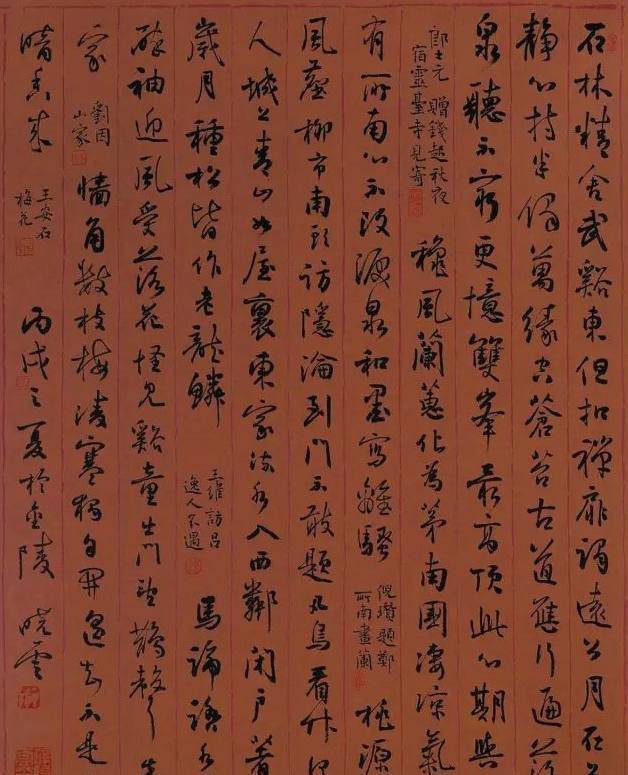 石林精舍武谿東但扣禪扉謁遠公月在
靜心持半偈萬緣空蒼苔古道應行遍落
泉聽不窮更憶雙峯最高頂此心期與
郎士元 贈錢起秋夜
宿靈臺寺見寄
穐風蘭蕙化為茅南國淒涼氣
有所南心不改淚泉和墨寫離騷
倪瓚題鄭
所南畫蘭
桃源
風塵柳市南頭訪隱淪到門不敢題凡鳥看竹何
人城上青山如屋裏東家流水入西鄰閉戶著
歲月種松皆作老龍鱗
王維 訪吕
逸人不遇
馬蹄踏水
醉袖迎風受落花怪見谿童出門望鵲聲先
家
劉因
山家
墻角數枝梅凌寒獨自開遥知不是
暗香來
王安石
梅花
丙戌之夏於金陵 曉雲